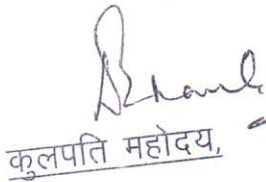 कुलपति महोदय,